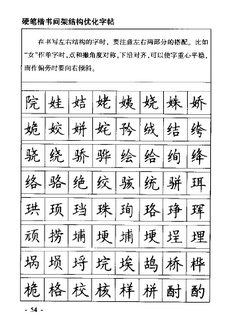 硬笔楷书间架结构优化字帖
在书写左右结构的字时，要注意左右两部分的搭配。比如
“女”作单字时，点和撇角度对称，下沿对齐，可以使字重心平稳，
而作偏旁时要向右倾斜。
院 娃 姞 姥 姨 娆 姝 娇
姽 姣 姘 姹 矜 绒 结 绔
骁 绕 骄 骅 绘 给 绚 绛
络 骆 绝 绞 骇 统 骈 珥
珙 顼 珰 珠 珣 珞 琤 珲
顽 捞 埔 埂 埔 埂 埕 埋
埚 埙 埒 垸 埃 鸪 桥 桦
桅 格 校 核 样 栟 酎 酌
· 54 ·